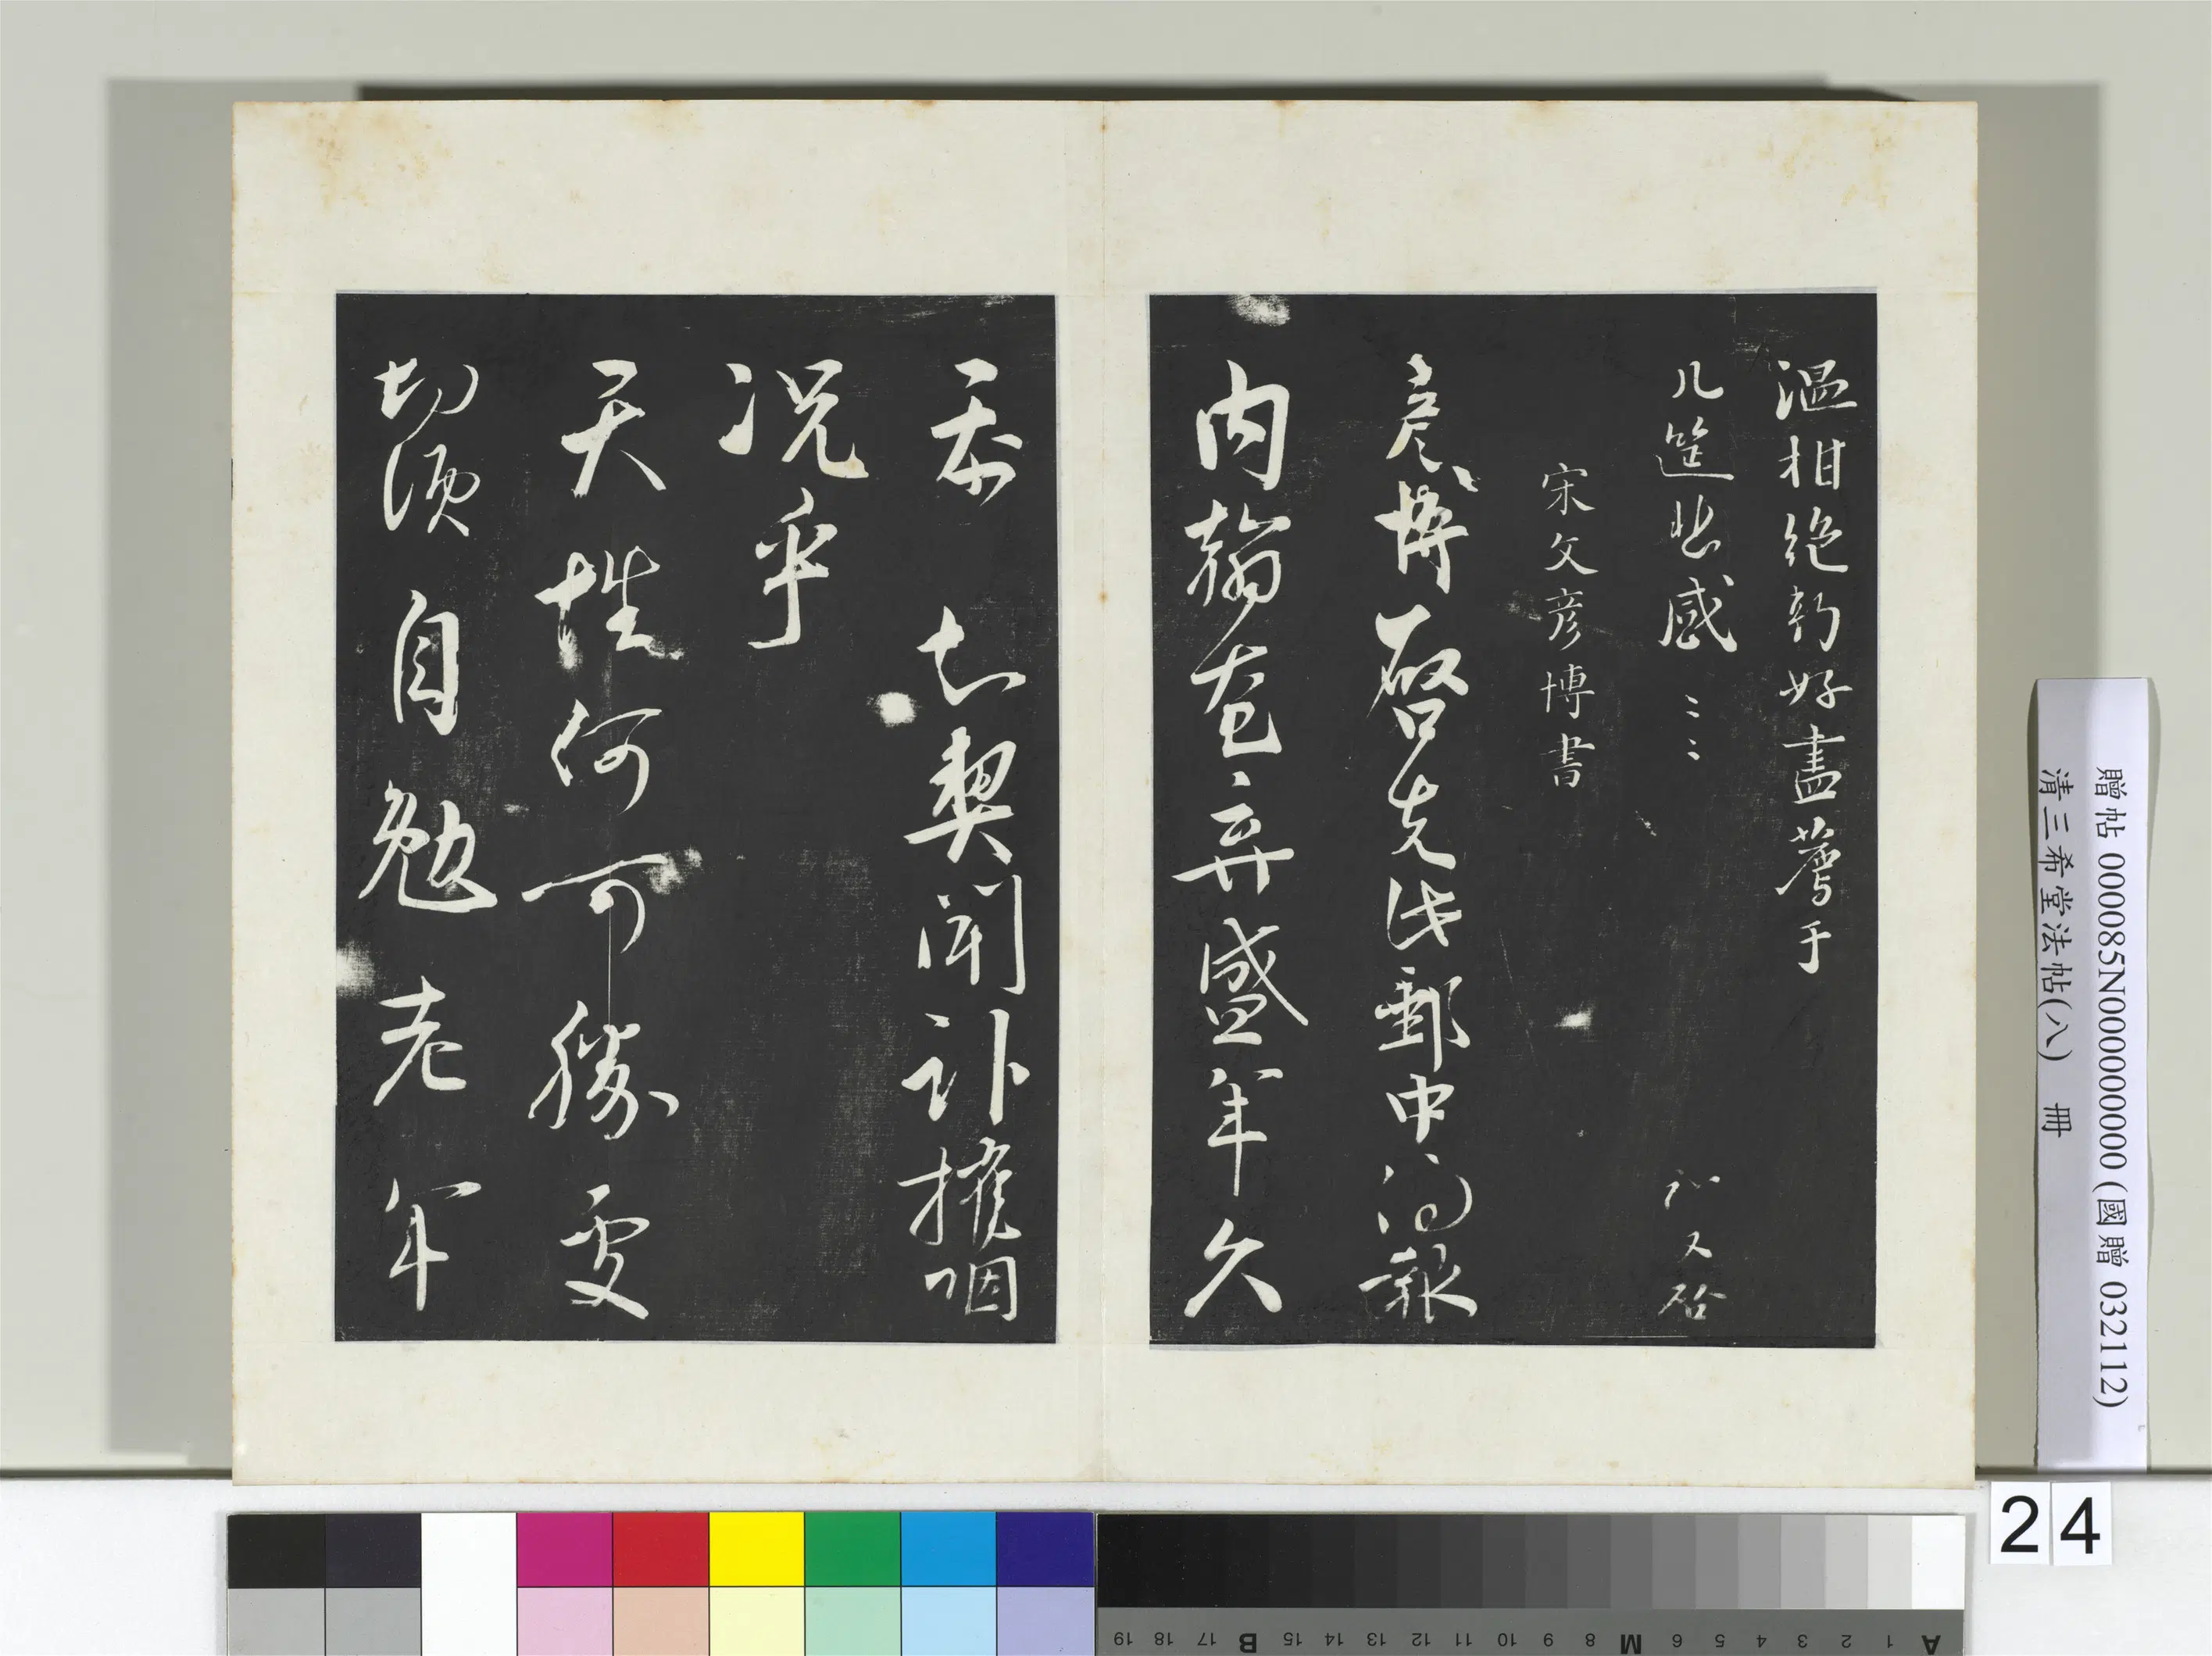 溫柑絶新好盡薦于
几筵悲感〻〻 沁又啓
宋文彦博書
彦博啓先得郵中所報
内翰奄棄盛年久
忝 知契聞訃摧咽
況乎
天性何可勝處
切須自勉老年
贈帖 000085N000000000 (國贈 032112)
清三希堂法帖(八) 冊
24
A 1 2 3 4 5 6 M 8 9 10 11 12 13 14 15 B 17 18 19